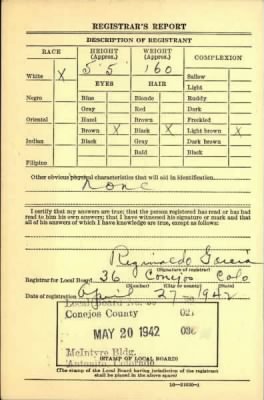 REGISTRAR'S REPORT
DESCRIPTION OF REGISTRANT
RACE
HEIGHT (Approx.)
WEIGHT (Approx.)
COMPLEXION
White X
5' 5
160
Sallow
EYES
HAIR
Light
Negro
Blue
Blonde
Ruddy
Gray
Red
Dark
Oriental
Hazel
Brown
Freckled
Brown X
Black X
Light brown X
Indian
Black
Gray
Dark brown
Bald
Black
Filipino
Other obvious physical characteristics that will aid in identification
None
I certify that my answers are true; that the person registered has read or has had
read to him his own answers; that I have witnessed his signature or mark and that
all of his answers of which I have knowledge are true, except as follows:
Reginaldo Garcia
(Signature of registrar)
Registrar for Local Board 36 Conejos Colo
(Number) (City or county) (State)
Date of registration April 27 1942
Local Board No.
Conejos County 021
MAY 20 1942 036
McIntyre Bldg.
Antonito, Colorado
(STAMP OF LOCAL BOARD)
(The stamp of the Local Board having jurisdiction of the registrant
shall be placed in the above space)